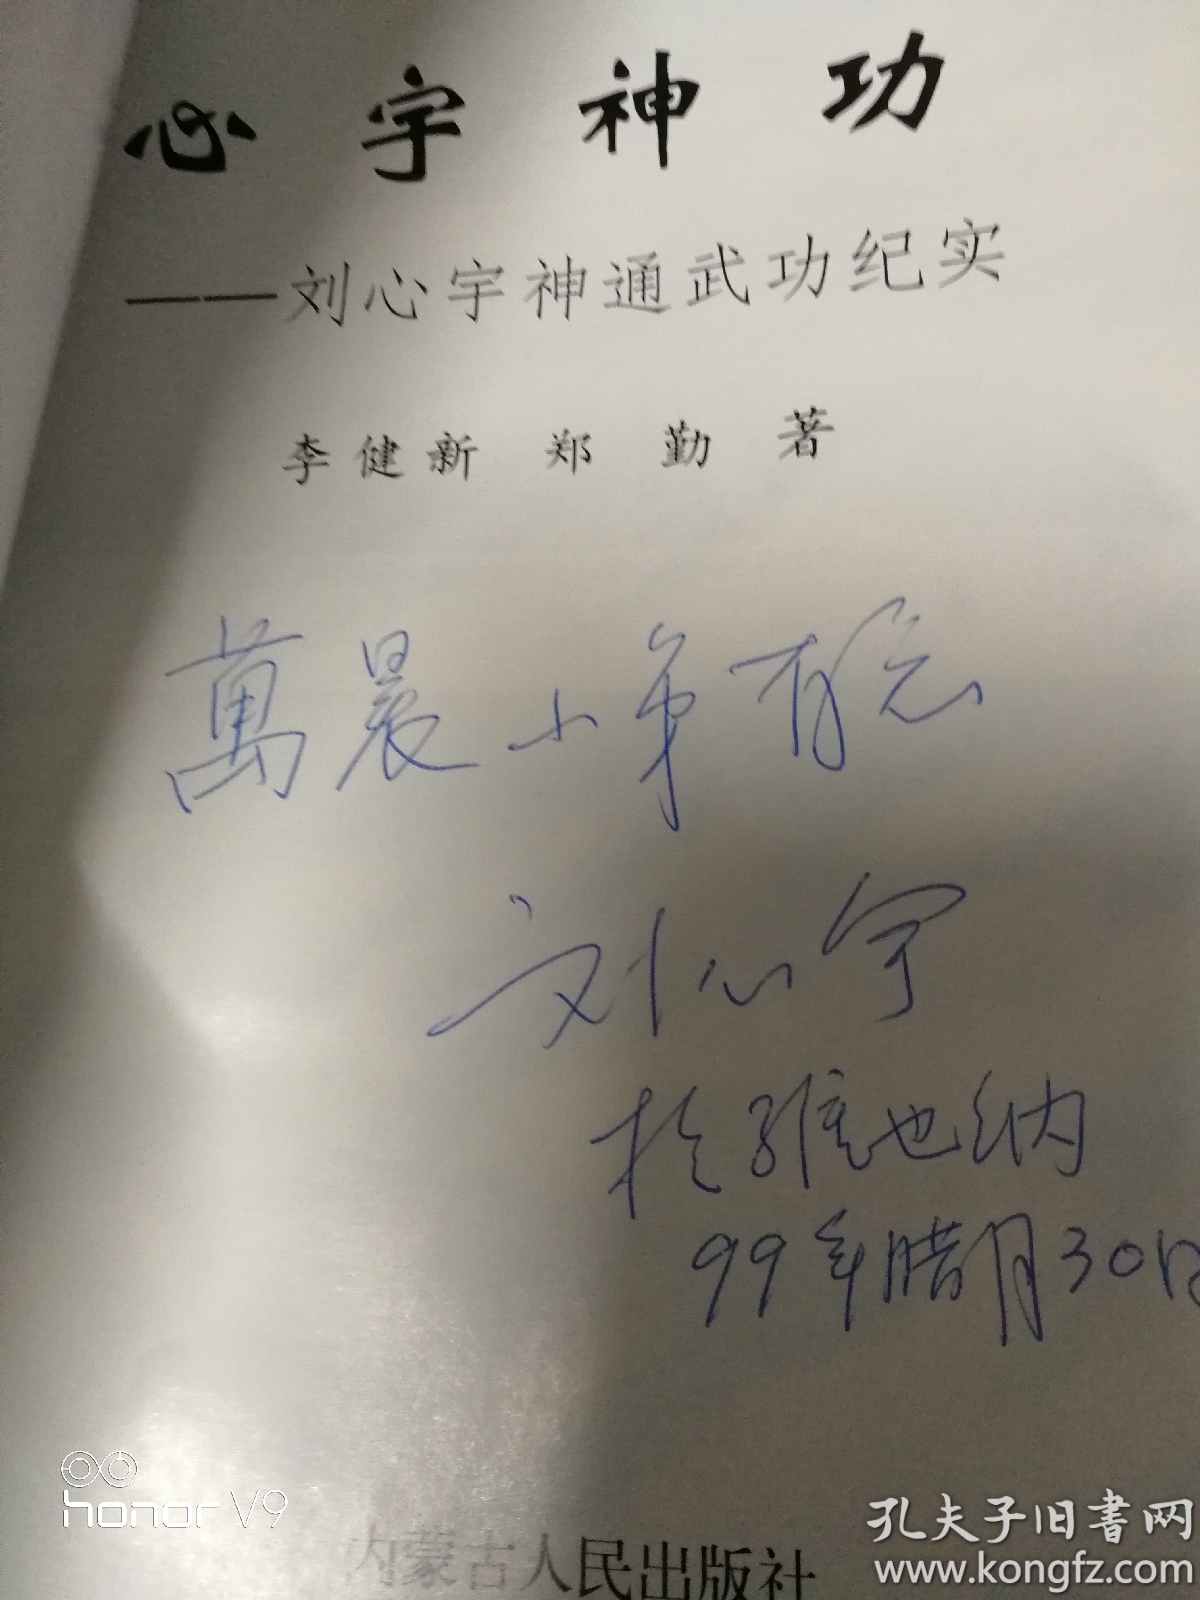 心宇神功
——刘心宇神通武功纪实
李健新 郑 勤 著
萬晨小弟有念
刘心宇
於維也纳
99年腊月30日
内蒙古人民出版社
honor V9
孔夫子旧书网
www.kongfz.com